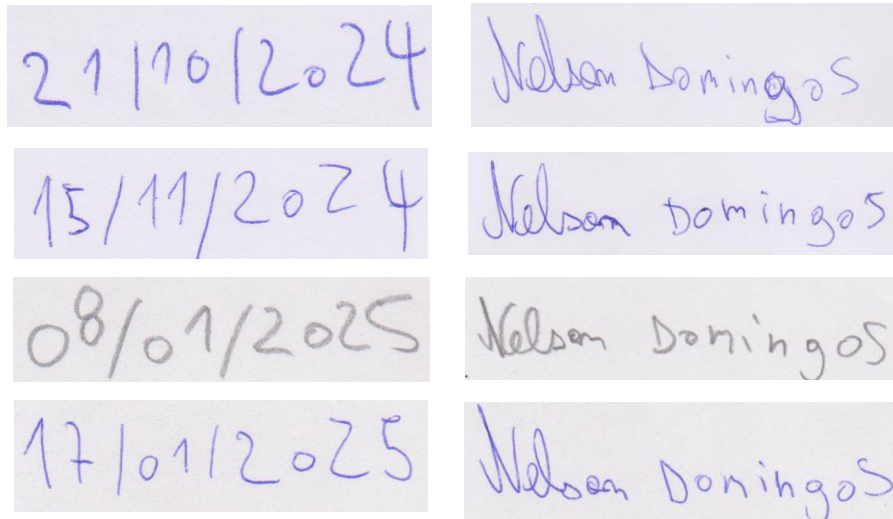 21/10/2024 Nelson Domingos
15/11/2024 Nelson Domingos
08/01/2025 Nelson Domingos
17/01/2025 Nelson Domingos